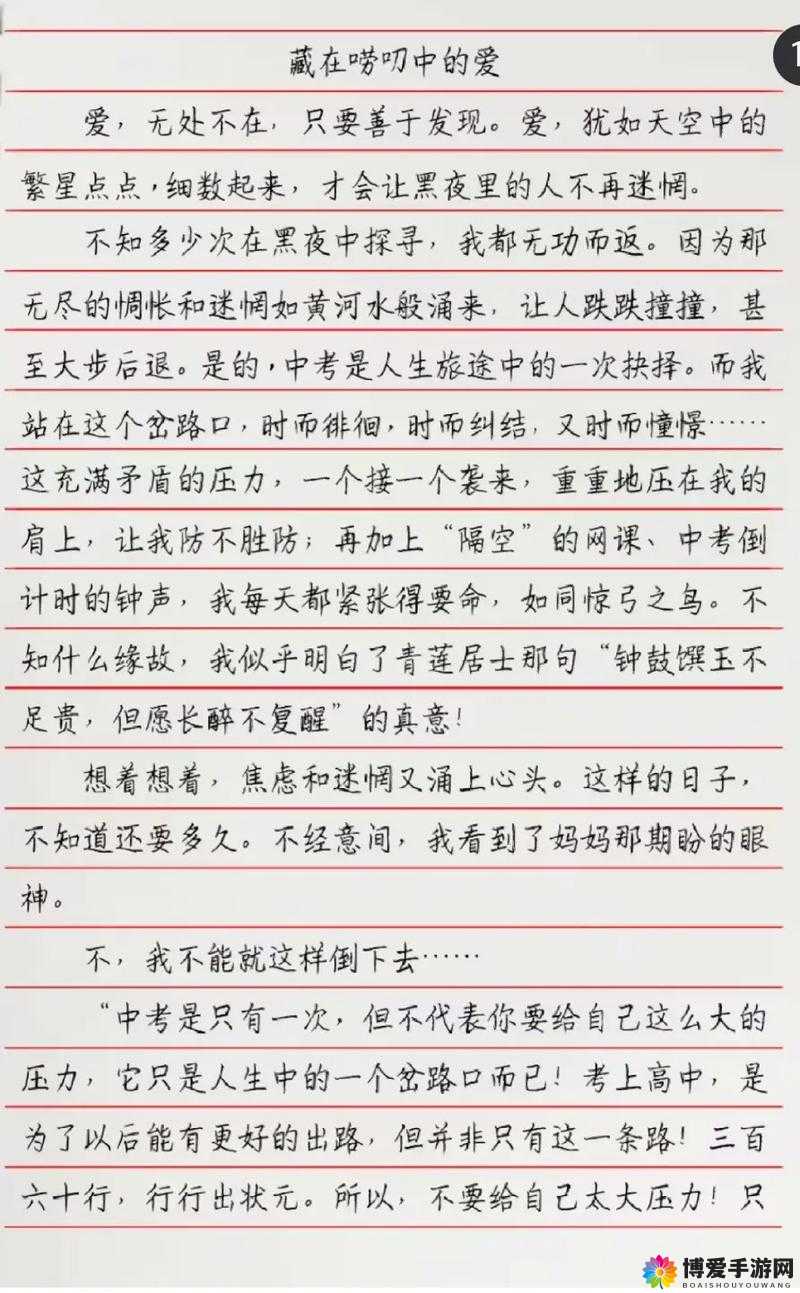 藏在唠叨中的爱
爱，无处不在，只要善于发现。爱，犹如天空中的
繁星点点，细数起来，才会让黑夜里的人不再迷惘。
不知多少次在黑夜中探寻，我都无功而返。因为那
无尽的惆怅和迷惘如黄河水般涌来，让人跌跌撞撞，甚
至大步后退。是的，中考是人生旅途中的一次抉择。而我
站在这个岔路口，时而徘徊，时而纠结，又时而憧憬……
这充满矛盾的压力，一个接一个袭来，重重地压在我的
肩上，让我防不胜防；再加上“隔空”的网课、中考倒
计时的钟声，我每天都紧张得要命，如同惊弓之鸟。不
知什么缘故，我似乎明白了青莲居士那句“钟鼓馔玉不
足贵，但愿长醉不复醒”的真意！
想着想着，焦虑和迷惘又涌上心头。这样的日子，
不知道还要多久。不经意间，我看到了妈妈那期盼的眼
神。
不，我不能就这样倒下去……
“中考是只有一次，但不代表你要给自己这么大的
压力，它只是人生中的一个岔路口而已！考上高中，是
为了以后能有更好的出路，但并非只有这一条路！三百
六十行，行行出状元。所以，不要给自己太大压力！只
1
博爱手游网
BOAISHOUYOUWANG